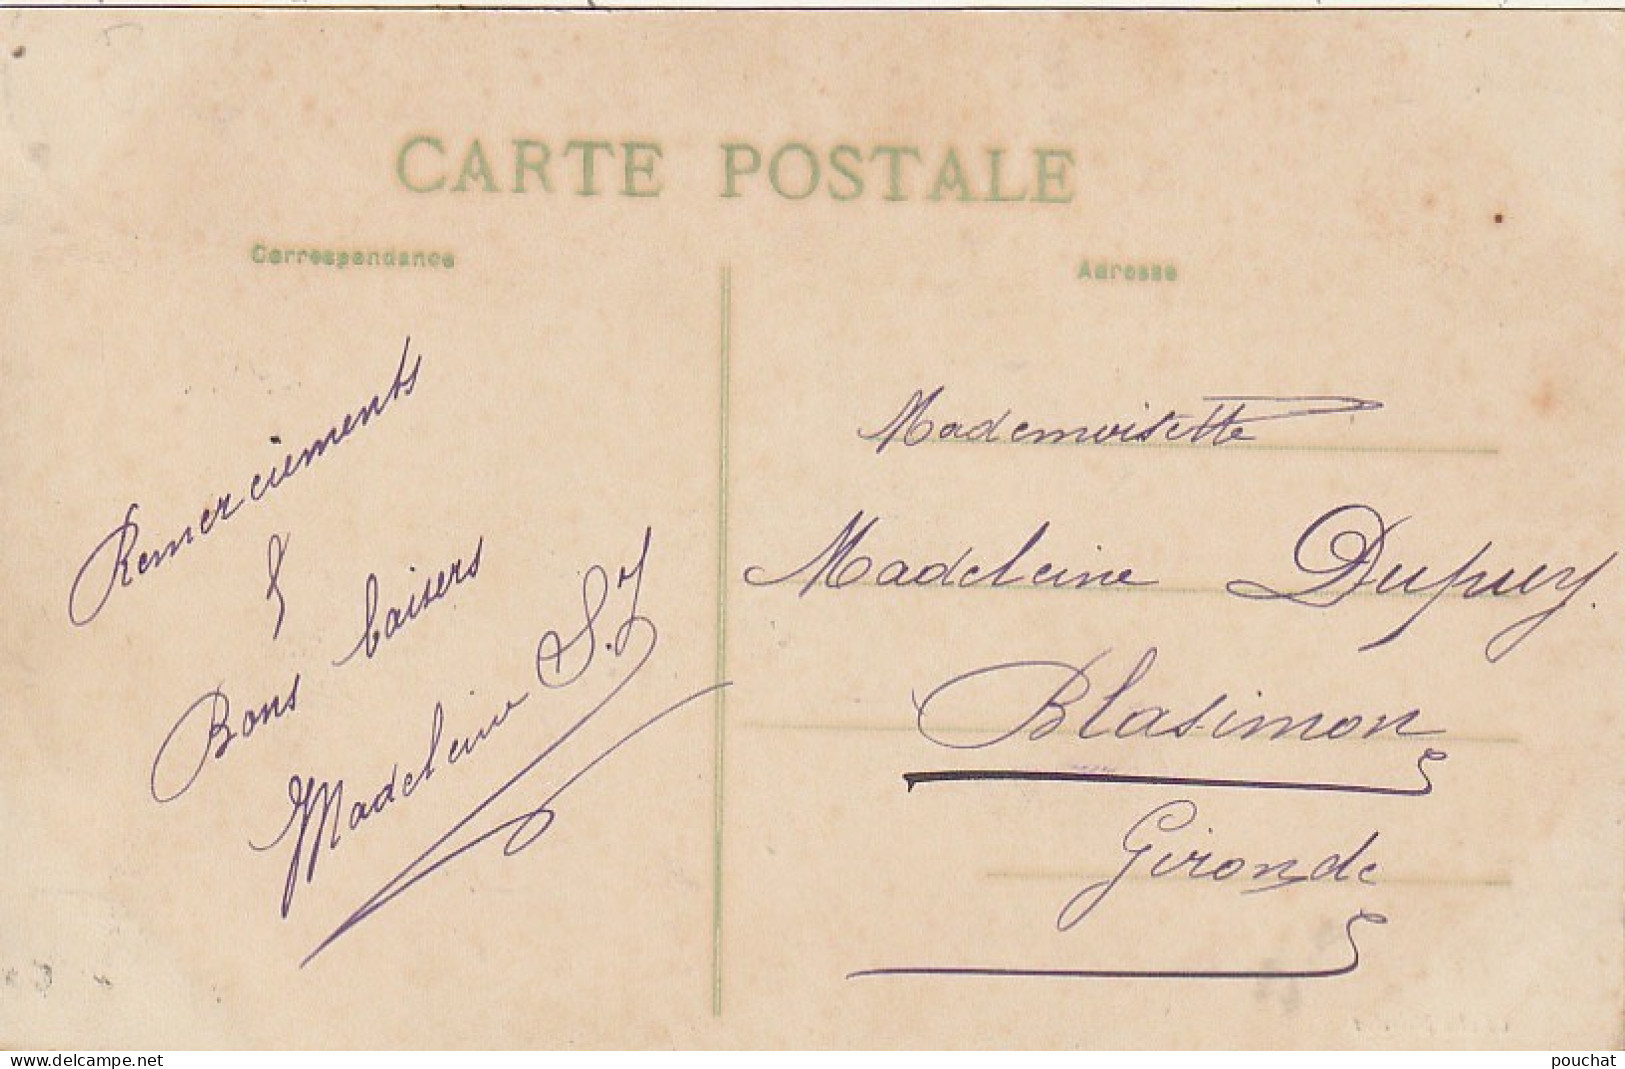 CARTE POSTALE
Correspondance
Adresse
Remerciements
&
Bons baisers
Madeleine S.J
Mademoiselle
Madeleine Dupuy.
Blasimon
Gironde
www.delcampe.net
pouchat